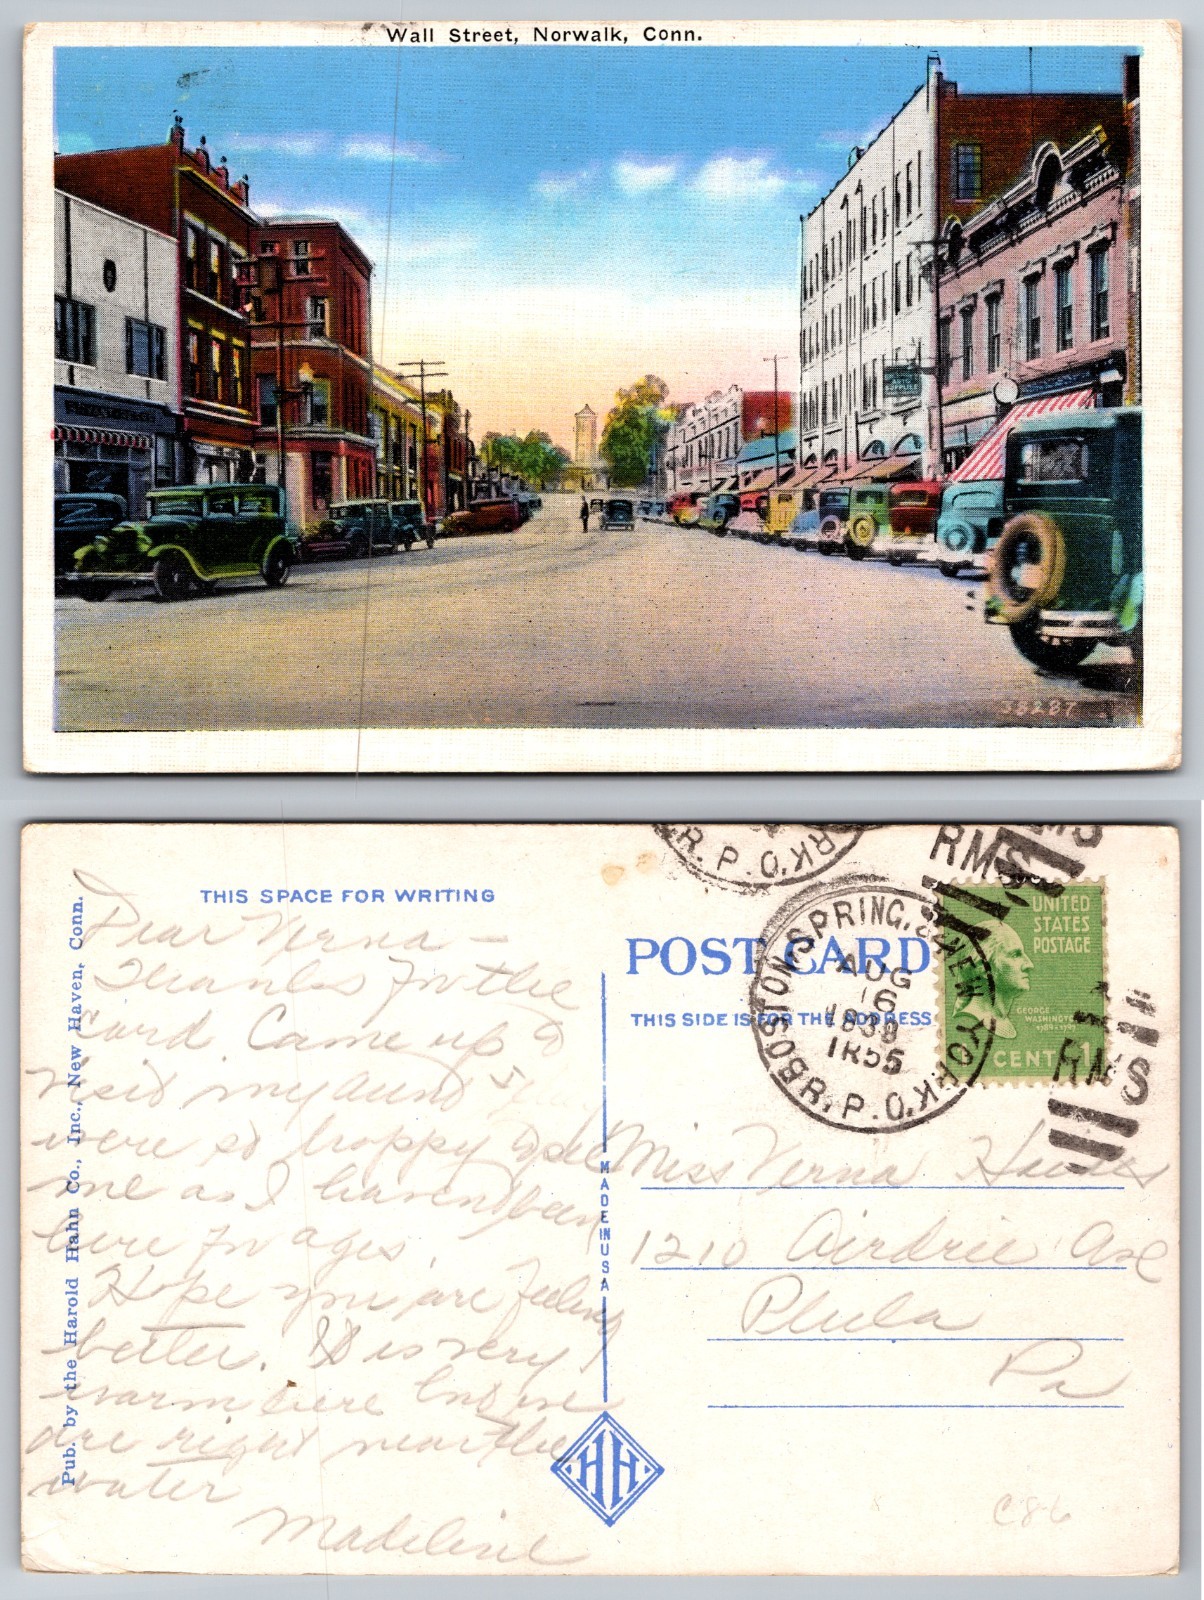 Wall Street, Norwalk, Conn.
AUTO
SUPPLIES
38287
THIS SPACE FOR WRITING
Dear Verna —
Thanks for the
card. Came up to
visit my aunt
were so happy to see
me as I haven't been
here for ages.
Hope you are feeling
better. It is very
warm here but we
are right near the
water
Madeline
Pub. by the Harold Hahn Co., Inc., New Haven, Conn.
MADE IN USA
HH
R.P.O.
RK
RMS
MS
POST CARD
THIS SIDE IS FOR THE ADDRESS
BOSTON SPRING. & NEW YORK
AUG
16
TR55
R.P.O.
RMS
UNITED
STATES
POSTAGE
GEORGE
WASHINGTON
1789-1797
CENT 1
Miss Verna
1210 Airdrie Ave
Phila
Pa
C8-6